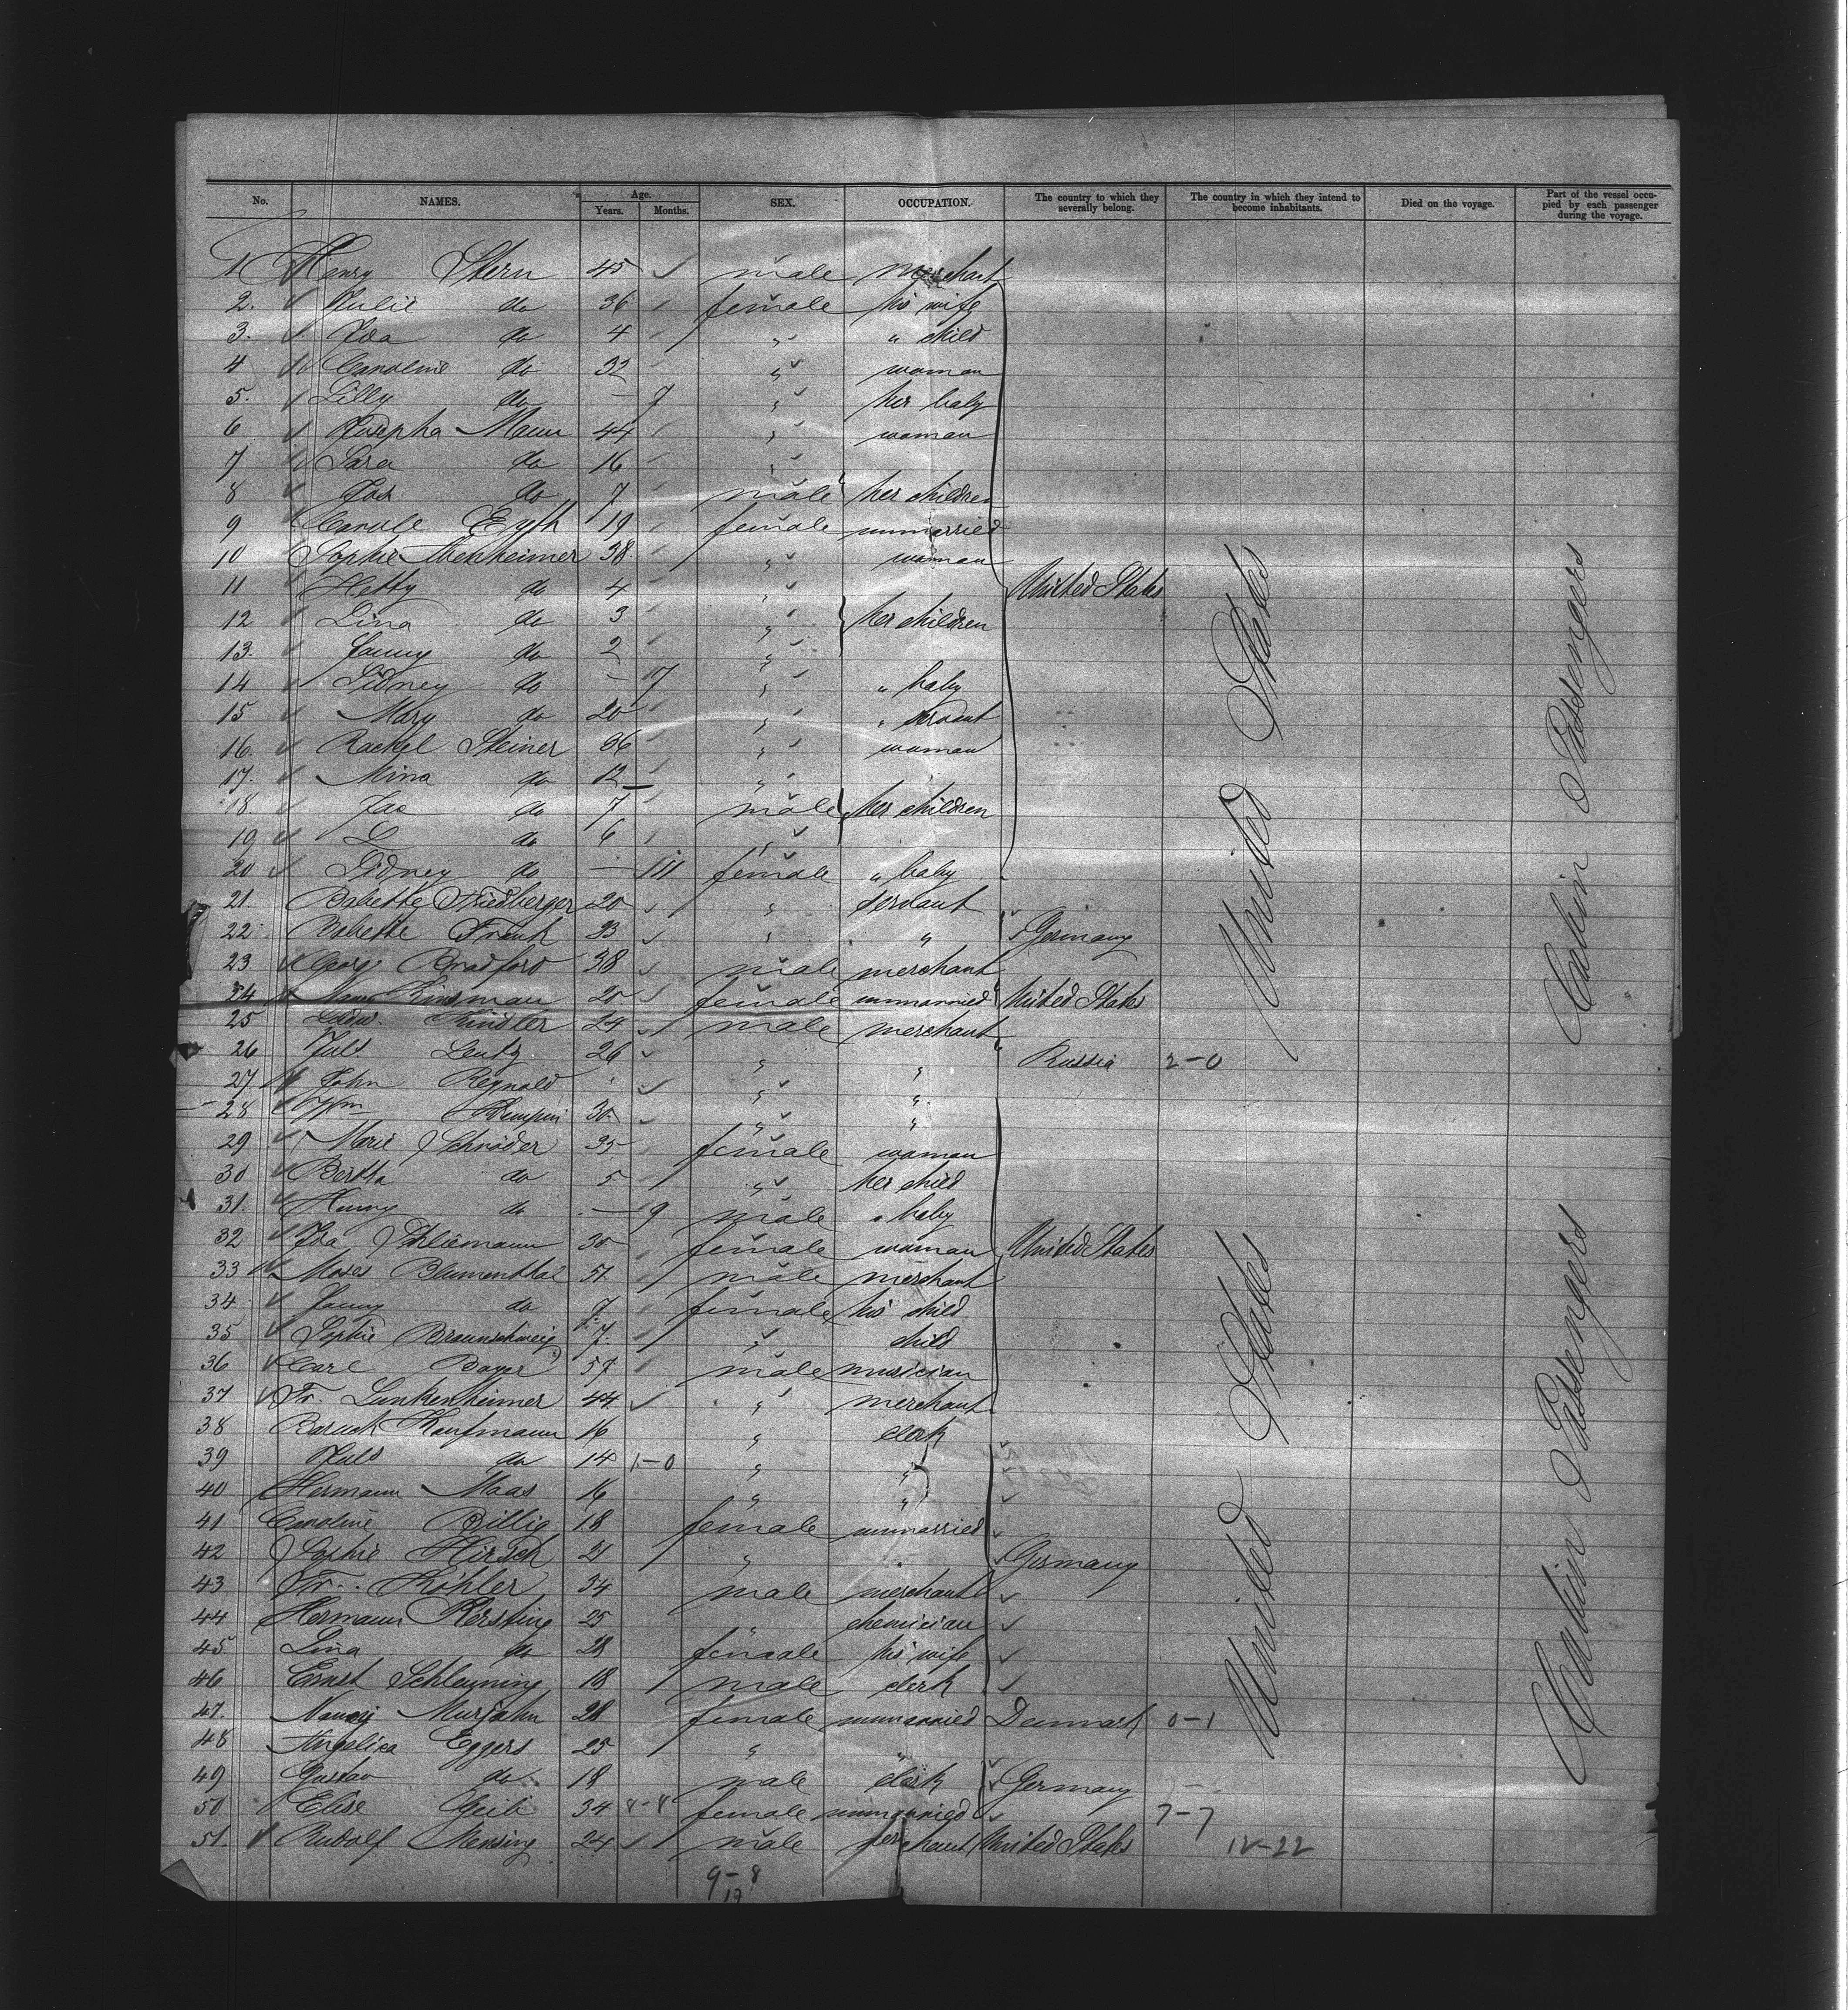 No. NAMES. Age. Years. Months. SEX. OCCUPATION. The country to which they severally belong. The country in which they intend to become inhabitants. Died on the voyage. Part of the vessel occupied by each passenger during the voyage.
1 Henry Stern 45 male merchant
2. Julie do 36 female his wife
3. Ida do 4 " " child
4 Caroline do 32 " woman
5. Lilly do — 9 " her baby
6 Josepha Mann 44 " woman
7 Sara do 16 "
8 Jos do 7 male her children
9 Carole 19 female unmarried
10 Sophie 38 " woman
11 Hetty do 4 " United States
12 Lina do 3 " her children
13. Fanny do 2 "
14 Sidney do — 7 " " baby
15 Mary do 20 " " servant
16. Rachel Steiner 36 " woman
17. Mina do 12 "
18. Jac do 7 male her children
19 L do 6 "
20 Sidney do — 11 female " baby
21. Babette Friedberger 20 " servant
22. Babette Frank 33 " " Germany
23 Georg Bradford 38 male merchant
24. Kinsman 20 female unmarried United States
25 Ludw. Kindler 24 male merchant
26 Juls Lentz 26 " " Russia 2-0
27 John Reynold " "
28 Wm 30 " "
29 Marie Schröder 35 female woman
30 Bertha do 5 " her child
31. Henry do — 9 male " baby
32 Ida Schliemann 30 female woman United States
33 Moses Blumenthal 51 male merchant
34 Fanny do 9 female his child
35 Sophie Braunschweig 7 " child
36 Carl Bayer 57 male musician
37 Fr. Lunkenheimer 44 " merchant
38 Baruch Kaufmann 16 " clerk
39 Juls do 14 1-0 " "
40 Hermann Maas 16 " "
41 Caroline Billig 18 female unmarried
42 Sophie Hirsch 21 " Germany
43 Fr. Köhler 34 male merchant
44 Hermann Kersting 25 " chemician
45. Lina do 28 female his wife
46 Ernst Schleuning 18 male clerk
47. Nancy Murjahn 28 female unmarried Denmark 0-1
48 Angelica Eggers 25 " "
49 Gustav do 18 male clerk Germany
50 Elise Geib 34 8-8 female unmarried 7-7
51. Rudolf Mensing 24 male merchant United States 12-22
9-8
United States
United States
Cabin Passengers
Cabin Passengers